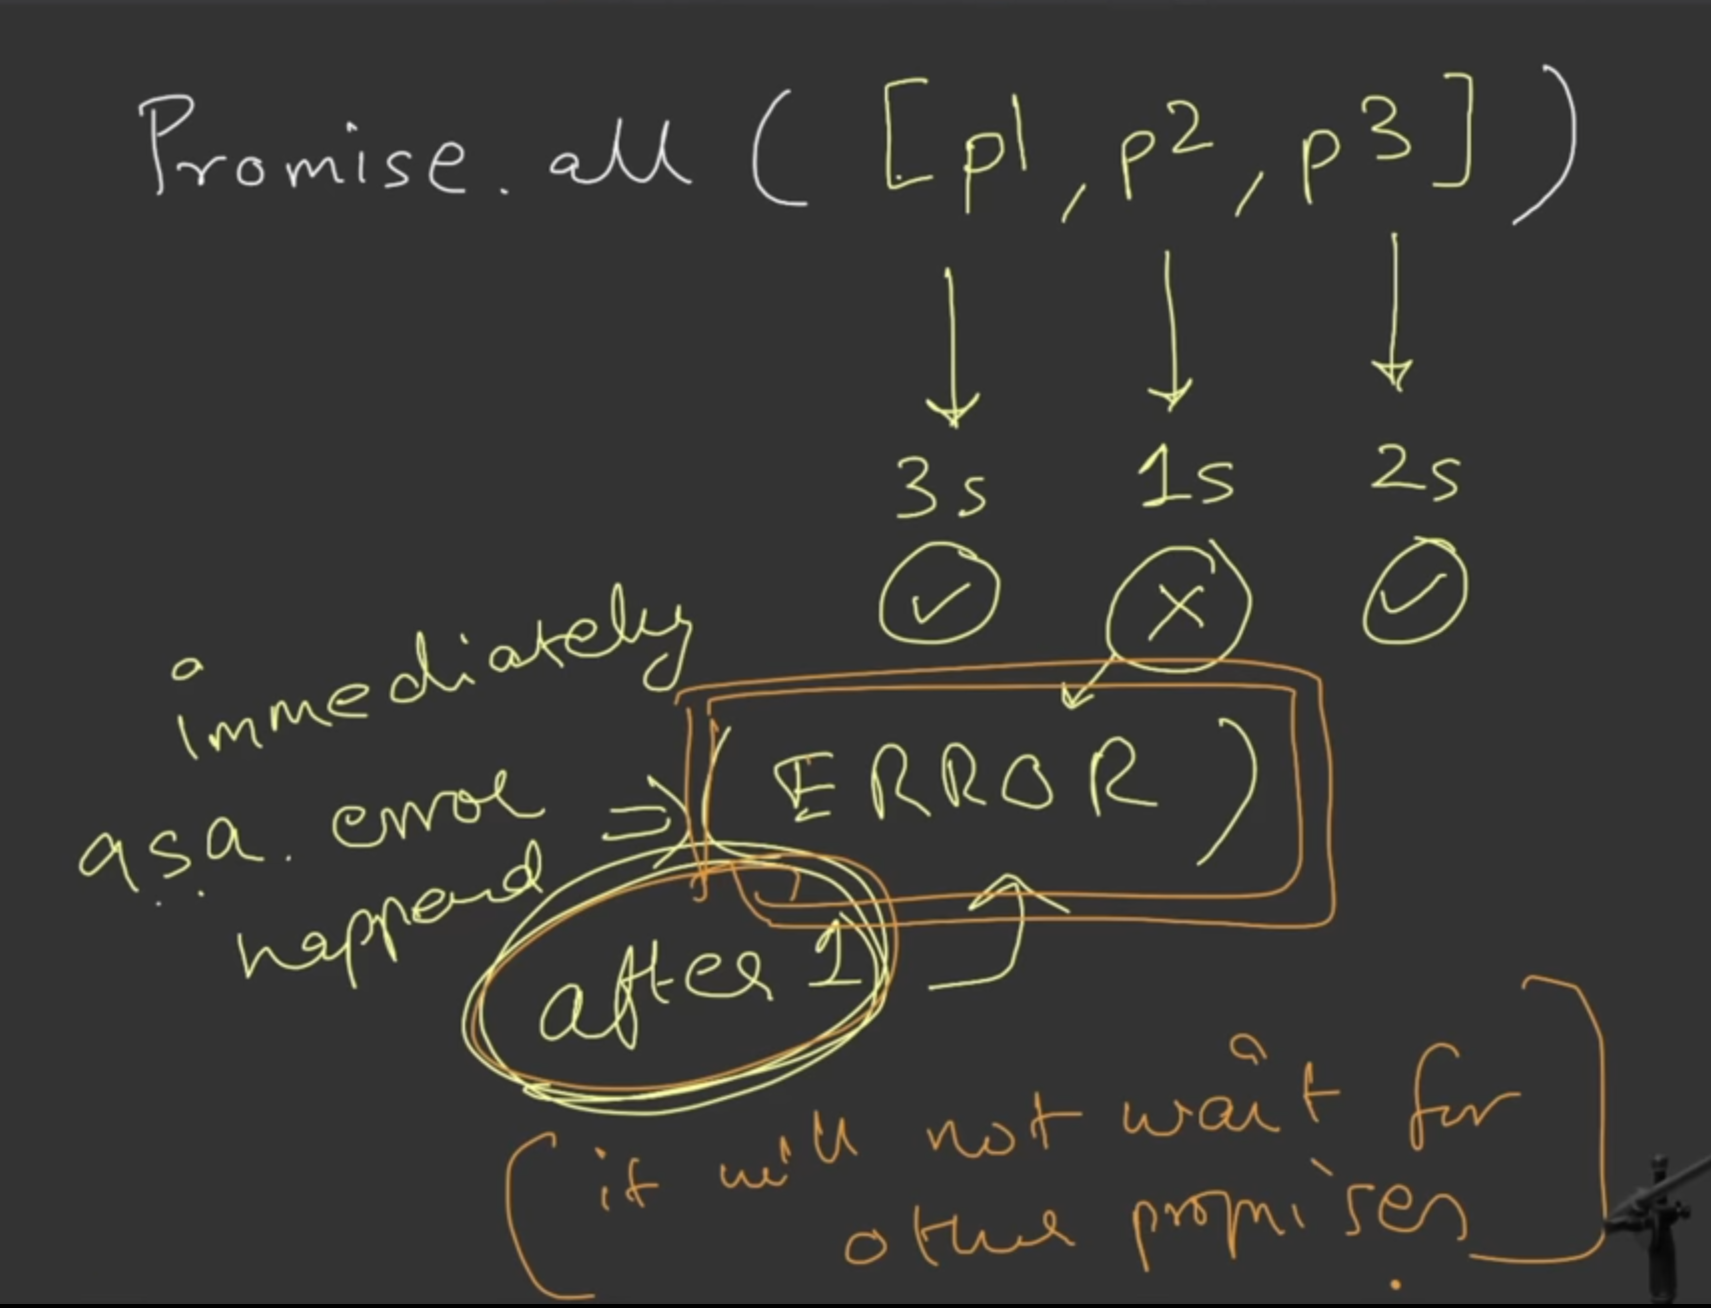 Promise.all ( [p1, p2, p3] )
3s 1s 2s
immediately
a.s.a. error
happend
=> (ERROR)
after 1
(it will not wait for
other promises]